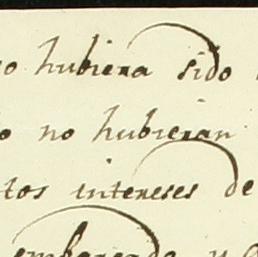 so hubiera sido
no hubieran
tos intereses de
embargado y